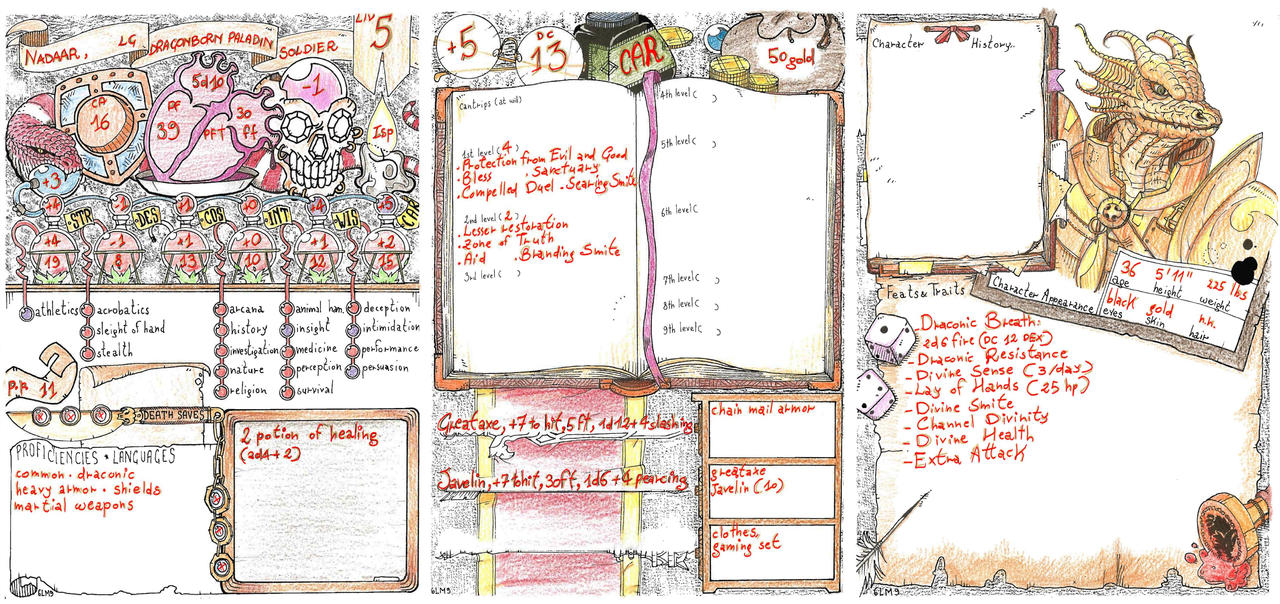 NADAAR, LG DRAGONBORN PALADIN SOLDIER
LIV 5
CA 16
5d10
PF 39
PFT
30 ff
-1
Isp
+3
+4 -1 +1 +0 +4 +5
STR DES COS INT WIS CAR
+4 -1 +1 +0 +1 +2
19 8 13 10 12 15
athletics
acrobatics
sleight of hand
stealth
arcana
history
investigation
nature
religion
animal han.
insight
medicine
perception
survival
deception
intimidation
performance
persuasion
P.P. 11
DEATH SAVES
PROFICIENCIES & LANGUAGES
common · draconic
heavy armor · shields
martial weapons
2 potion of healing
(2d4+2)
GLM9
+5
DC 13
CAR
50 gold
Cantrips (at will)
1st level (4)
· Protection from Evil and Good
· Bless · Sanctuary
· Compelled Duel · Searing Smite
2nd level (2)
· Lesser restoration
· Zone of Truth
· Aid · Branding Smite
3rd level ( )
4th level ( )
5th level ( )
6th level (
7th level ( )
8th level ( )
9th level ( )
Greataxe, +7 to hit, 5 ft, 1d12+4 slashing
Javelin, +7 to hit, 30ft, 1d6 +4 pearcing
chain mail armor
greataxe
Javelin (10)
clothes,
gaming set
GLM9
Character History..
36 5'11" 225 lbs
age height weight
Character Appearance
black gold n.h.
eyes skin hair
Feats & Traits
- Draconic Breath:
2d6 fire (DC 12 DEX)
- Draconic Resistance
- Divine Sense (3/day)
- Lay of Hands (25 hp)
- Divine Smite
- Channel Divinity
- Divine Health
- Extra Attack
GLM9